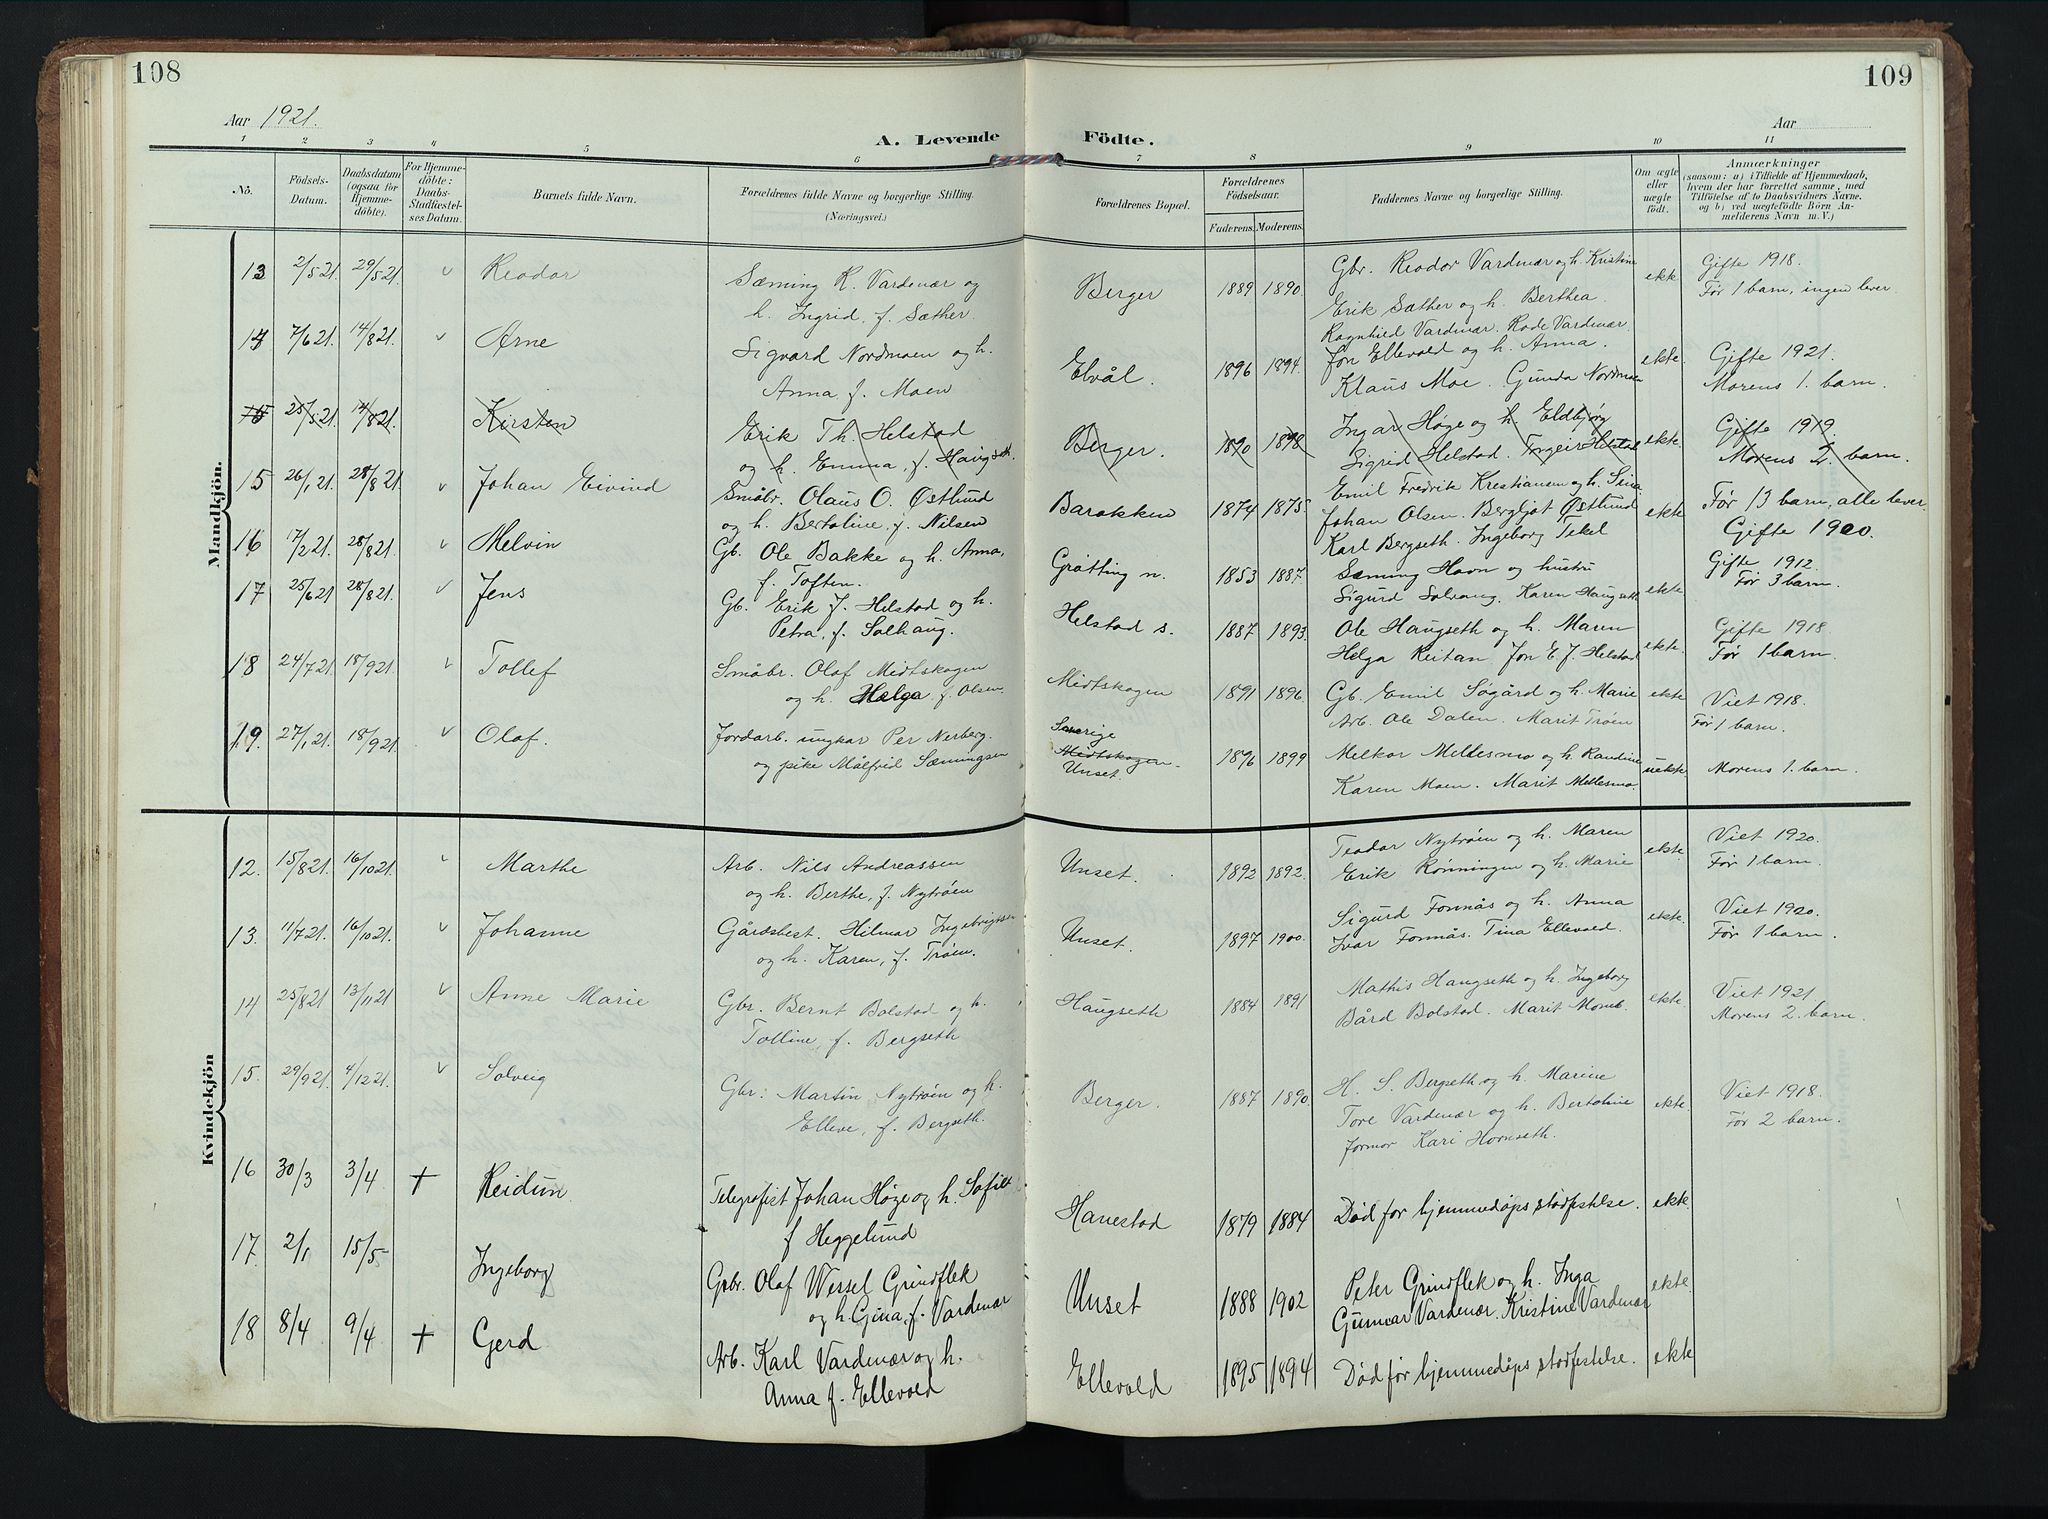 108
109
Aar 1921.
Aar
A. Levende Födte.
1 2 3 4 5 6 7 8 9 10 11
No.
Födsels-Datum.
Daabsdatum (ogsaa for Hjemmedöbte).
For Hjemmedöbte: Daabs-Stadfæstelses Datum.
Barnets fulde Navn.
Forældrenes fulde Navne og borgerlige Stilling.
(Næringsvei.)
Forældrenes Bopæl.
Forældrenes Födselsaar.
Faderens. Moderens.
Faddernes Navne og borgerlige Stilling.
Om ægte eller uægte födt.
Anmærkninger
(saasom: a) i Tilfælde af Hjemmedaab,
hvem der har forrettet samme, med
Tilföielse af to Daabsvidners Navne,
og b) ved uægtefödte Börn An-
melderens Navn m. V.)
Mandkjön.
13 2/5 21. 29/5 21. v Reodor Sæming R. Vardenær og Berger 1889 1890. Gbr. Reodor Vardenær og h. Kristine ekte Gifte 1918.
h. Ingrid, f. Sæther. Erik Sæther og h. Berthea. Før 1 barn, ingen lever
Ragnhild Vardenær. Rode Vardenær.
14 7/6 21. 14/8 21. v Arne Sigvard Nordmoen og h. Elvål. 1896 1894. Jon Ellevold og h. Anna. ekte Gifte 1921.
Anna, f. Moen Klaus Moe. Gunda Nordmoen Morens 1. barn.
15 25/5 21. 14/8 21. Kirsten Erik Th. Helstad Berger. 1890 1898 Ingar Høge og h. Eldbjørg ekte Gifte 1919
og h. Emma, f. Haugseth. Sigrid Helstad. Torgeir Helstad Morens 2. barn.
15 26/1 21. 28/8 21 v Johan Eivind Småbr. Olaus O. Østlund Barakken 1874 1875. Emil Fredrik Krestiansen og h. Sina ekte Før 13 barn, alle lever
og h. Bertoline, f. Nilsen Johan Olsen. Bergljot Østlund Gifte 1900.
16 7/2 21. 28/8 21. v Melvin Gb. Ole Bakke og h. Anna, Grøtting n. 1853 1887. Karl Bergseth. Ingeborg Tekel Gifte 1912.
f. Toften. Sæming Havn og hustru Før 3 barn.
17 25/6 21 28/8 21. v Jens Gb. Erik J. Helstad og h. Helstad s. 1887 1893. Sigurd Solvang. Karen Haugseth ekte.
Petra, f. Solhaug. Ole Haugseth og h. Maren ekte. Gifte 1918
18 24/7 21 18/9 21. v Tollef Småbr. Olaf Midtskogen Midtskogen 1891 1896. Helga Reitan Jon E. J. Helstad Før 1 barn.
og h. Helga f. Olsen. Gb. Emil Søgård og h. Marie ekte Viet 1918.
Arb. Ole Dalen. Marit Trøen Før 1 barn.
19. 27/1 21. 18/9 21. v Olaf. Jordarb. ungkar Per Nerberg. Sverige 1896 1899 Melkor Mellesmo og h. Randine uekte Morens 1. barn.
og pike Målfrid Sæmingsen Midtskogen. Unset. Karen Moen. Marit Mellesmo.
Kvindekjön
12. 15/8 21. 16/10 21. v Marthe Arb. Nils Andreassen Unset. 1892 1892. Teodor Nytrøen og h. Maren ekte Viet 1920.
og h. Berthe, f. Nytrøen Erik Rønningen og h. Marie Før 1 barn.
13. 11/7 21. 16/10 21. v Johanne Gårdsbest. Hilmar Ingebrigtsen Unset. 1897 1900. Sigurd Fonnås og h. Anna ekte. Viet 1920.
og h. Karen, f. Trøen. Ivar Fonnås. Tina Ellevold. Før 1 barn.
14 25/8 21 13/11 21 v Anne Marie Gbr. Bernt Bolstad og h. Haugseth 1884 1891 Mathis Haugseth og h. Ingeborg ekte. Viet 1921.
Tolline, f. Bergseth Bård Bolstad. Marit Momb. Morens 2. barn.
15. 29/9 21. 4/12 21. v Solveig Gbr: Martin Nytrøen og h. Berger. 1887 1890. H. S. Bergseth og h. Marine ekte. Viet 1918.
Elleve, f. Bergseth. Tore Vardenær og h. Bertoline Før 2 barn.
Formor Kari Hornseth.
16 30/3 3/4 + Reidun Telegrafist Johan Høge og h. Sofie Hanestad 1879 1884 Død før hjemmedåps stadfestelse. ekte.
f Heggelund
17. 2/1 15/5 Ingeborg Gbr. Olaf Wessel Grindflek Unset 1888 1902 Peter Grindflek og h. Inga ekte.
og h. Gina, f. Vardenær Gunnar Vardenær. Kristine Vardenær
18 8/4 9/4 + Gerd Arb. Karl Vardenær og h. Ellevold 1895 1894 Død før hjemmedåps stadfestelse. ekte
Anna f. Ellevold